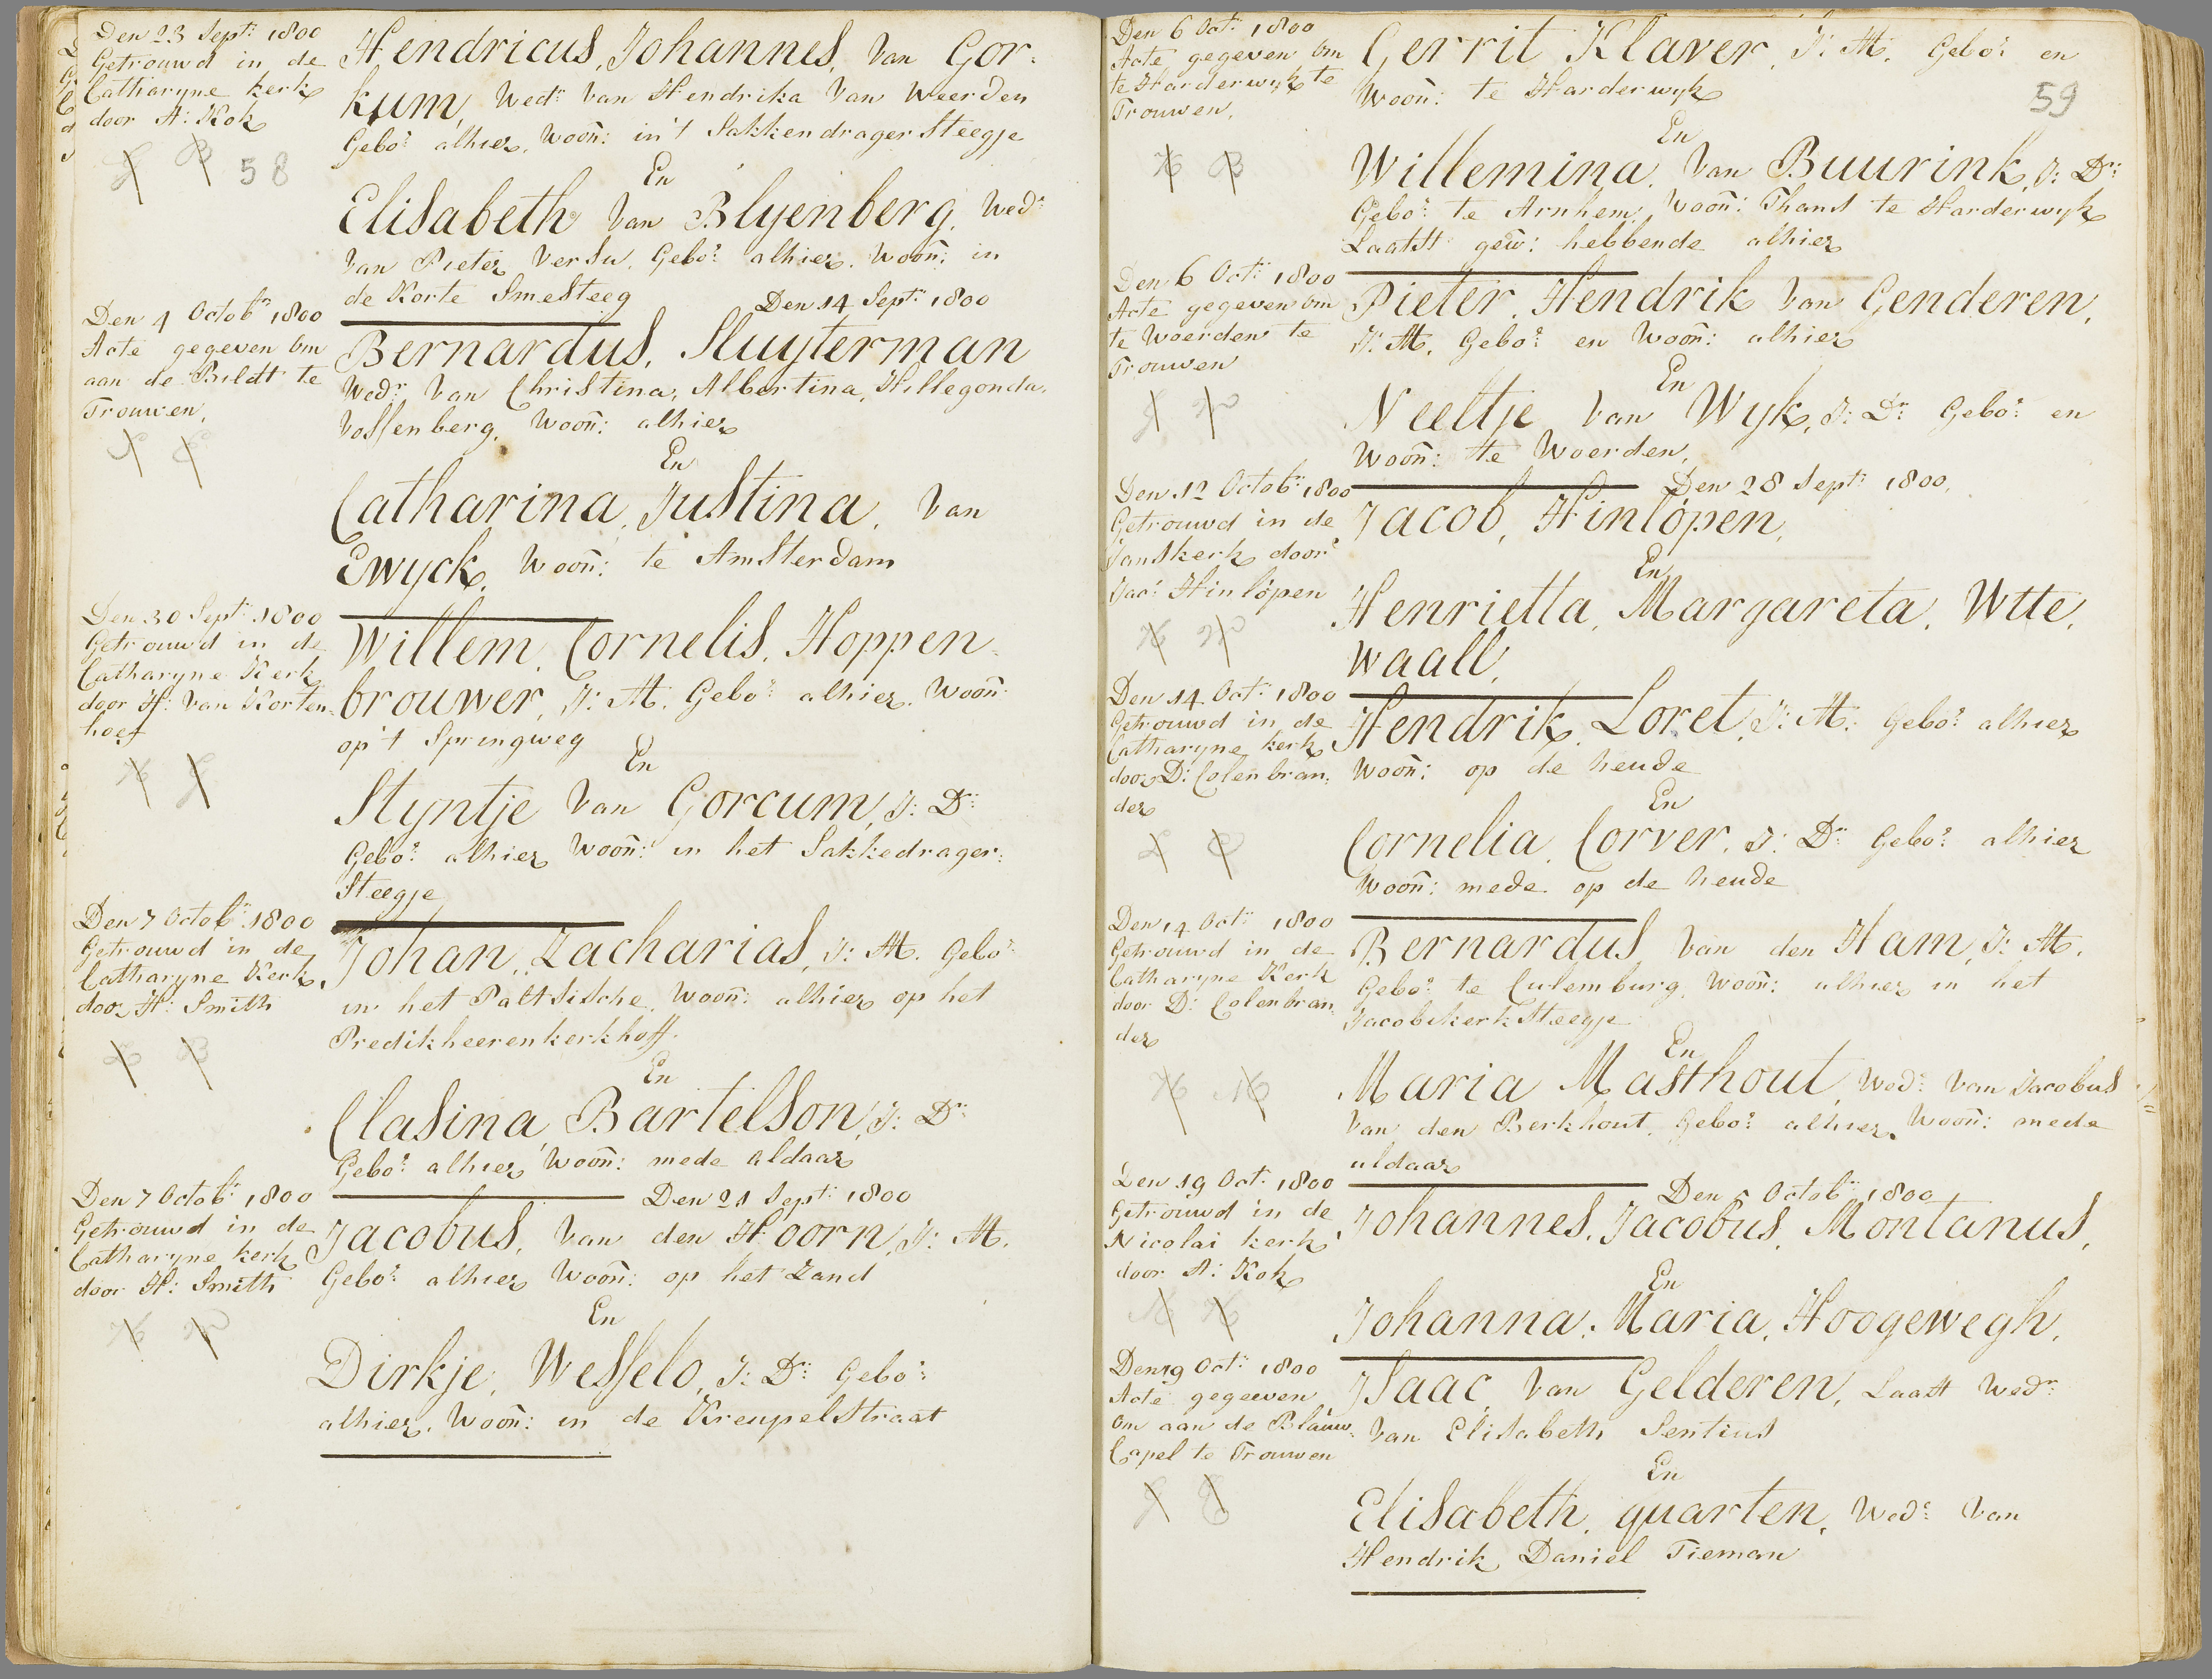 Den 23 Sept: 1800
Getrouwd in de
Catharyne kerk
door A: Kok
58
Hendricus, Johannes, Van Gor-
kum, Wedr Van Hendrika Van Weerden
Gebor: alhier, Woon: in 't Sakkendrager Steegje
En
Elisabeth Van Blyenberg, Wedr:
Van Pieter Versu, Gebor: alhier. Woon: in
de Korte Smesteeg
Den 14 Sept: 1800
Den 4 Octobr: 1800
Acte gegeven om
aan de Bildt te
Trouwen,
Bernardus, Sluyterman
Wedr: Van Christina, Albertina, Hillegonda,
Vossenberg, Woon: alhier
En
Catharina, Justina, Van
Ewyck, Woon: te Amsterdam
Den 30 Sept: 1800
Getrouwd in de
Catharyne Kerk
door H: Van Korten-
hoef
Willem, Cornelis, Hoppen-
brouwer, J: M. Gebor: alhier. Woon:
op 't Springweg
En
Styntje Van Gorcum, J: Dr:
Gebor: alhier Woon: in het Sakkedrager:
Steegje
Den 7 Octobr: 1800
Getrouwd in de
Catharyne Kerk,
door H: Smith
Johan, Zacharias, J: M. Gebor:
in het Paltsische, Woon: alhier op het
Predikheerenkerkhoff.
En
Clasina, Bartelson, J: Dr:
Gebor: alhier Woon: mede aldaar
Den 21 Sept: 1800
Den 7 Octobr: 1800
Getrouwd in de
Catharyne kerk
door H: Smith
Jacobus, Van den Hoorn, J: M.
Gebor: alhier Woon: op het Zand
En
Dirkje, Wesselo, J: Dr: Gebor:
alhier, Woon: in de Kreupelstraat
Den 6 Oct: 1800
Acte gegeven om
te Harderwyk te
Trouwen,
Gerrit Klaver, J: M. Gebor: en
Woon: te Harderwyk
59
En
Willemina, Van Buurink, J: Dr:
Gebor: te Arnhem, Woon: Thans te Harderwyk
Laatst gew: hebbende alhier
Den 6 Oct: 1800
Acte gegeven om
te Woerden te
Trouwen
Pieter, Hendrik Van Genderen,
J: M. Gebor: en Woon: alhier
En
Neeltje Van Wyk, J: Dr: Gebor: en
Woon: te Woerden,
Den 28 Sept: 1800,
Den 12 Octobr: 1800
Getrouwd in de
Janskerk door
Jac: Hinlópen
Jacob, Hinlópen,
En
Henrietta, Margareta, Wtte,
Waall,
Den 14 Oct: 1800
Getrouwd in de
Catharyne kerk
door D: Colenbran:
der
Hendrik, Loret, J: M: Gebor: alhier
Woon: op de Neude
En
Cornelia, Corver, J: Dr: Gebor: alhier
Woon: mede op de Neude
Den 14 Oct: 1800
Getrouwd in de
Catharyne Kerk
door D: Colenbran:
der
Bernardus Van den Ham, J: M.
Gebor: te Culemburg, Woon: alhier in het
Jacobikerk Steegje
En
Maria Masthout, Wedr: Van Jacobus
Van den Berkhout, Gebor: alhier, Woon: mede
aldaar
Den 5 Octobr: 1800
Den 19 Oct: 1800
Getrouwd in de
Nicolai kerk
door A: Kok
Johannes, Jacobus, Montanus,
En
Johanna, Maria, Hoogewegh,
Den 19 Oct: 1800
Acte gegeeven
om aan de Blauw-
Capel te Trouwen
Isaac, Van Gelderen, Laatst Wedr:
Van Elisabeth Sentius
En
Elisabeth, quarten, Wedr: Van
Hendrik, Daniel Tieman